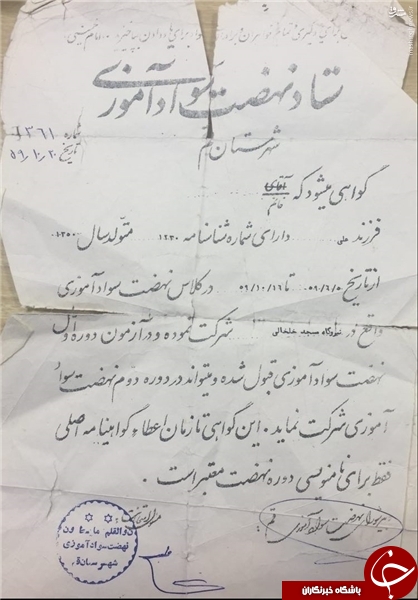 ستاد نهضت سوادآموزی
شهرستان قم
شماره ۱۳۶۱
تاریخ ۵۹/۱۰/۲۰
گواهی میشود که آقای
خانم
فرزند علی دارای شماره شناسنامه ۱۲۳۰ متولد سال ۱۳۵۰
از تاریخ ۵۹/۶/۵ تا ۵۹/۱۰/۱۶ در کلاس نهضت سوادآموزی
واقع در مسجد خلخالی شرکت نموده و در آزمون دوره اول
نهضت سوادآموزی قبول شده و میتواند در دوره دوم نهضت سواد
آموزی شرکت نماید. این گواهی تا زمان اعطاء گواهینامه اصلی
فقط برای نامنویسی دوره نهضت معتبر است.
شورای نهضت سوادآموزی قم
ن والقلم و ما یسطرون
نهضت سوادآموزی
شهرستان قم
باشگاه خبرنگاران